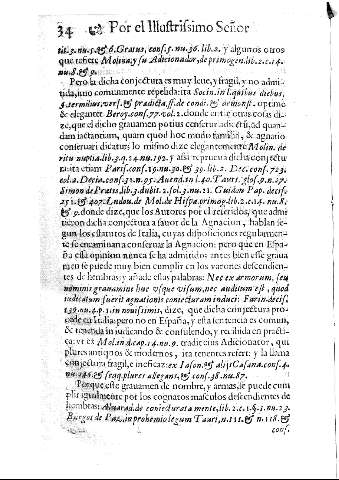 34 Por el Illustrissimo Señor
tit.3.nu.5. & 6. Gratus, cons.5.nu.36.lib.2. y algunos otros
que refiere Molina, y su Adicionador, de primogen.lib.2.c.14.
nu.8. & 9.
Pero la dicha conjectura es muy leve, y fragil, y no admi-
tida, imo comunmente repelida: ita Socin. in l. quibus diebus,
§. terminius, vers. & prædicta, ff. de condi. & demonst. optimè
& eleganter Beroy, cons.77. vol.2. donde entre otras cosas di-
ze, que el dicho gravamen potius censetur adictũ, ad quan-
dam iactantiam, quam quod hoc modo familia, & agnatio
conservari dicatur: lo mismo dize elegantemente Molin. de
ritu nuptia.lib.3.q.24.nu.192. y assi reprueva dicha conjectu-
ra
Simon de Pratis, lib.3. dubit.2. sol.3. nu.21. Guido Pap. decis.
& 9. donde dize, que los Autores por el referidos, que admi-
tieron dicha conjectura a favor de la Agnacion, hablan se-
gun los estatutos de Italia, cuyas disposiciones regularmen-
te se encaminan a conservar la Agnacion: pero que en Espa-
ña essa opinion nunca se ha admitido antes bien esse grava-
men se puede muy bien cumplir en los varones descendien-
tes de hembras; y añade estas palabras: Nec ex armorum, seu
nominis gravamine huc usque visum, nec auditum est, quod
iudicatum fuerit agnationis coniecturam induci: Farin. decis.
139.nu.4.p.1. in novissimis, dize, que dicha conjectura pro-
cede en Italia: pero no en España, y esta sentencia es comun,
& tenenda in iudicando & consulendo, y recibida en practi-
ca: vt ex Molin. d. cap.14. nu.9. tradit eius Adicionator, qui
plures antiquos & modernos, ita tenentes refert: y la llama
conjectura fragil, e ineficaz: ex Iason. & alijs Casana. cons.4.
plures allegans, & cons.38. nu.87.
Porque este gravamen de nombre, y armas, se puede cum
plir igualmente por los cognatos masculos descendientes de
hembras: Alvarad. de coniecturata mente, lib.2. c.1. §.1. nu.23.
Burgos de Paz, in prohemio legum Tauri, n.111. & n.118. &
cons.